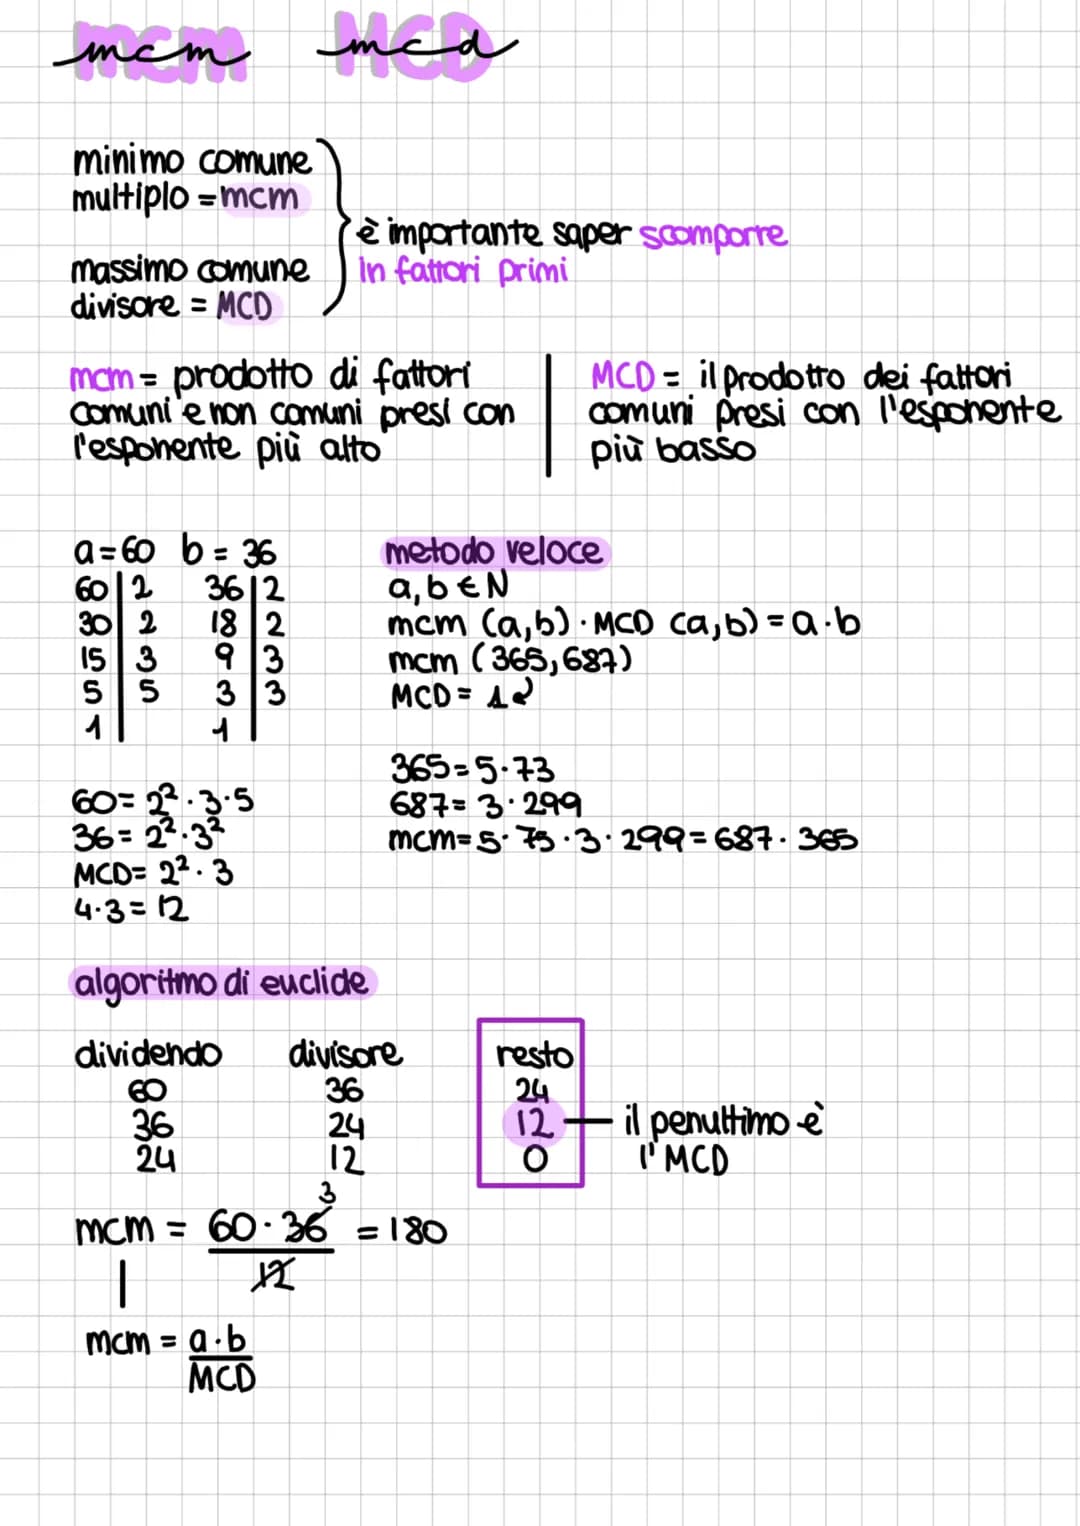 mcm MCD
mcm mcd
minimo comune
multiplo = mcm
massimo comune
divisore = MCD
è importante saper scomporre
in fattori primi
mcm = prodotto di fattori
comuni e non comuni presi con
l'esponente più alto
MCD = il prodotto dei fattori
comuni presi con l'esponente
più basso
a = 60 b = 36
60 | 2 36 | 2
30 | 2 18 | 2
15 | 3 9 | 3
5 | 5 3 | 3
1 | 1 |
60 = 2² · 3 · 5
36 = 2² · 3²
MCD = 2² · 3
4 · 3 = 12
metodo veloce
a, b ∈ N
mcm (a,b) · MCD (a,b) = a · b
mcm (365, 687)
MCD = 1
365 = 5 · 73
687 = 3 · 299
mcm = 5 · 75 · 3 · 299 = 687 · 365
algoritmo di euclide
dividendo divisore resto
60 36 24
36 24 12 — il penultimo è
24 12 0 l'MCD
3
mcm = 60 · 36 = 180
12
mcm = a · b
MCD